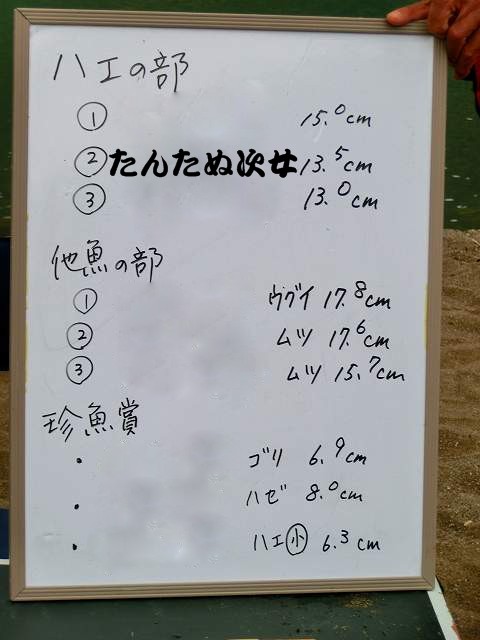 ハエの部
① 15.0cm
② たんたぬ次女 13.5cm
③ 13.0cm
他魚の部
① ウグイ 17.8cm
② ムツ 17.6cm
③ ムツ 15.7cm
珍魚賞
・ ゴリ 6.9cm
・ ハゼ 8.0cm
・ ハエ小 6.3cm